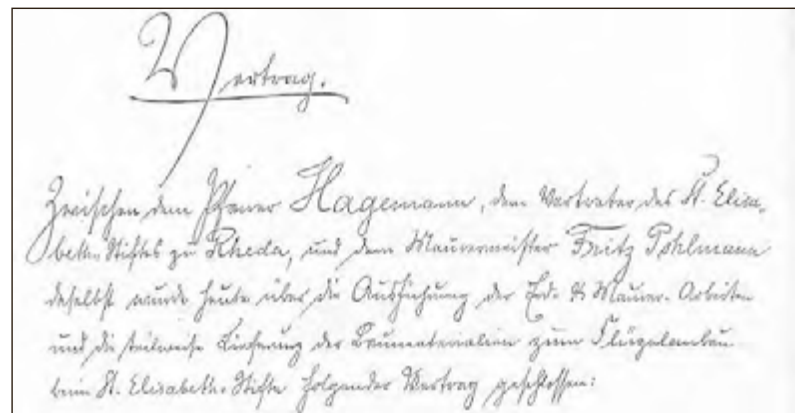 Vertrag.
Zwischen dem Pfarrer Hagemann, dem Vertreter des St. Elisa-
beth-Stiftes zu Rheda, und dem Maurermeister Fritz Pohlmann
daselbst wurde heute über die Ausführung der Erd- & Maurer-Arbeiten
und die teilweise Lieferung der Baumaterialien zum Flügelanbau
beim St. Elisabeth-Stifte folgender Vertrag geschlossen: